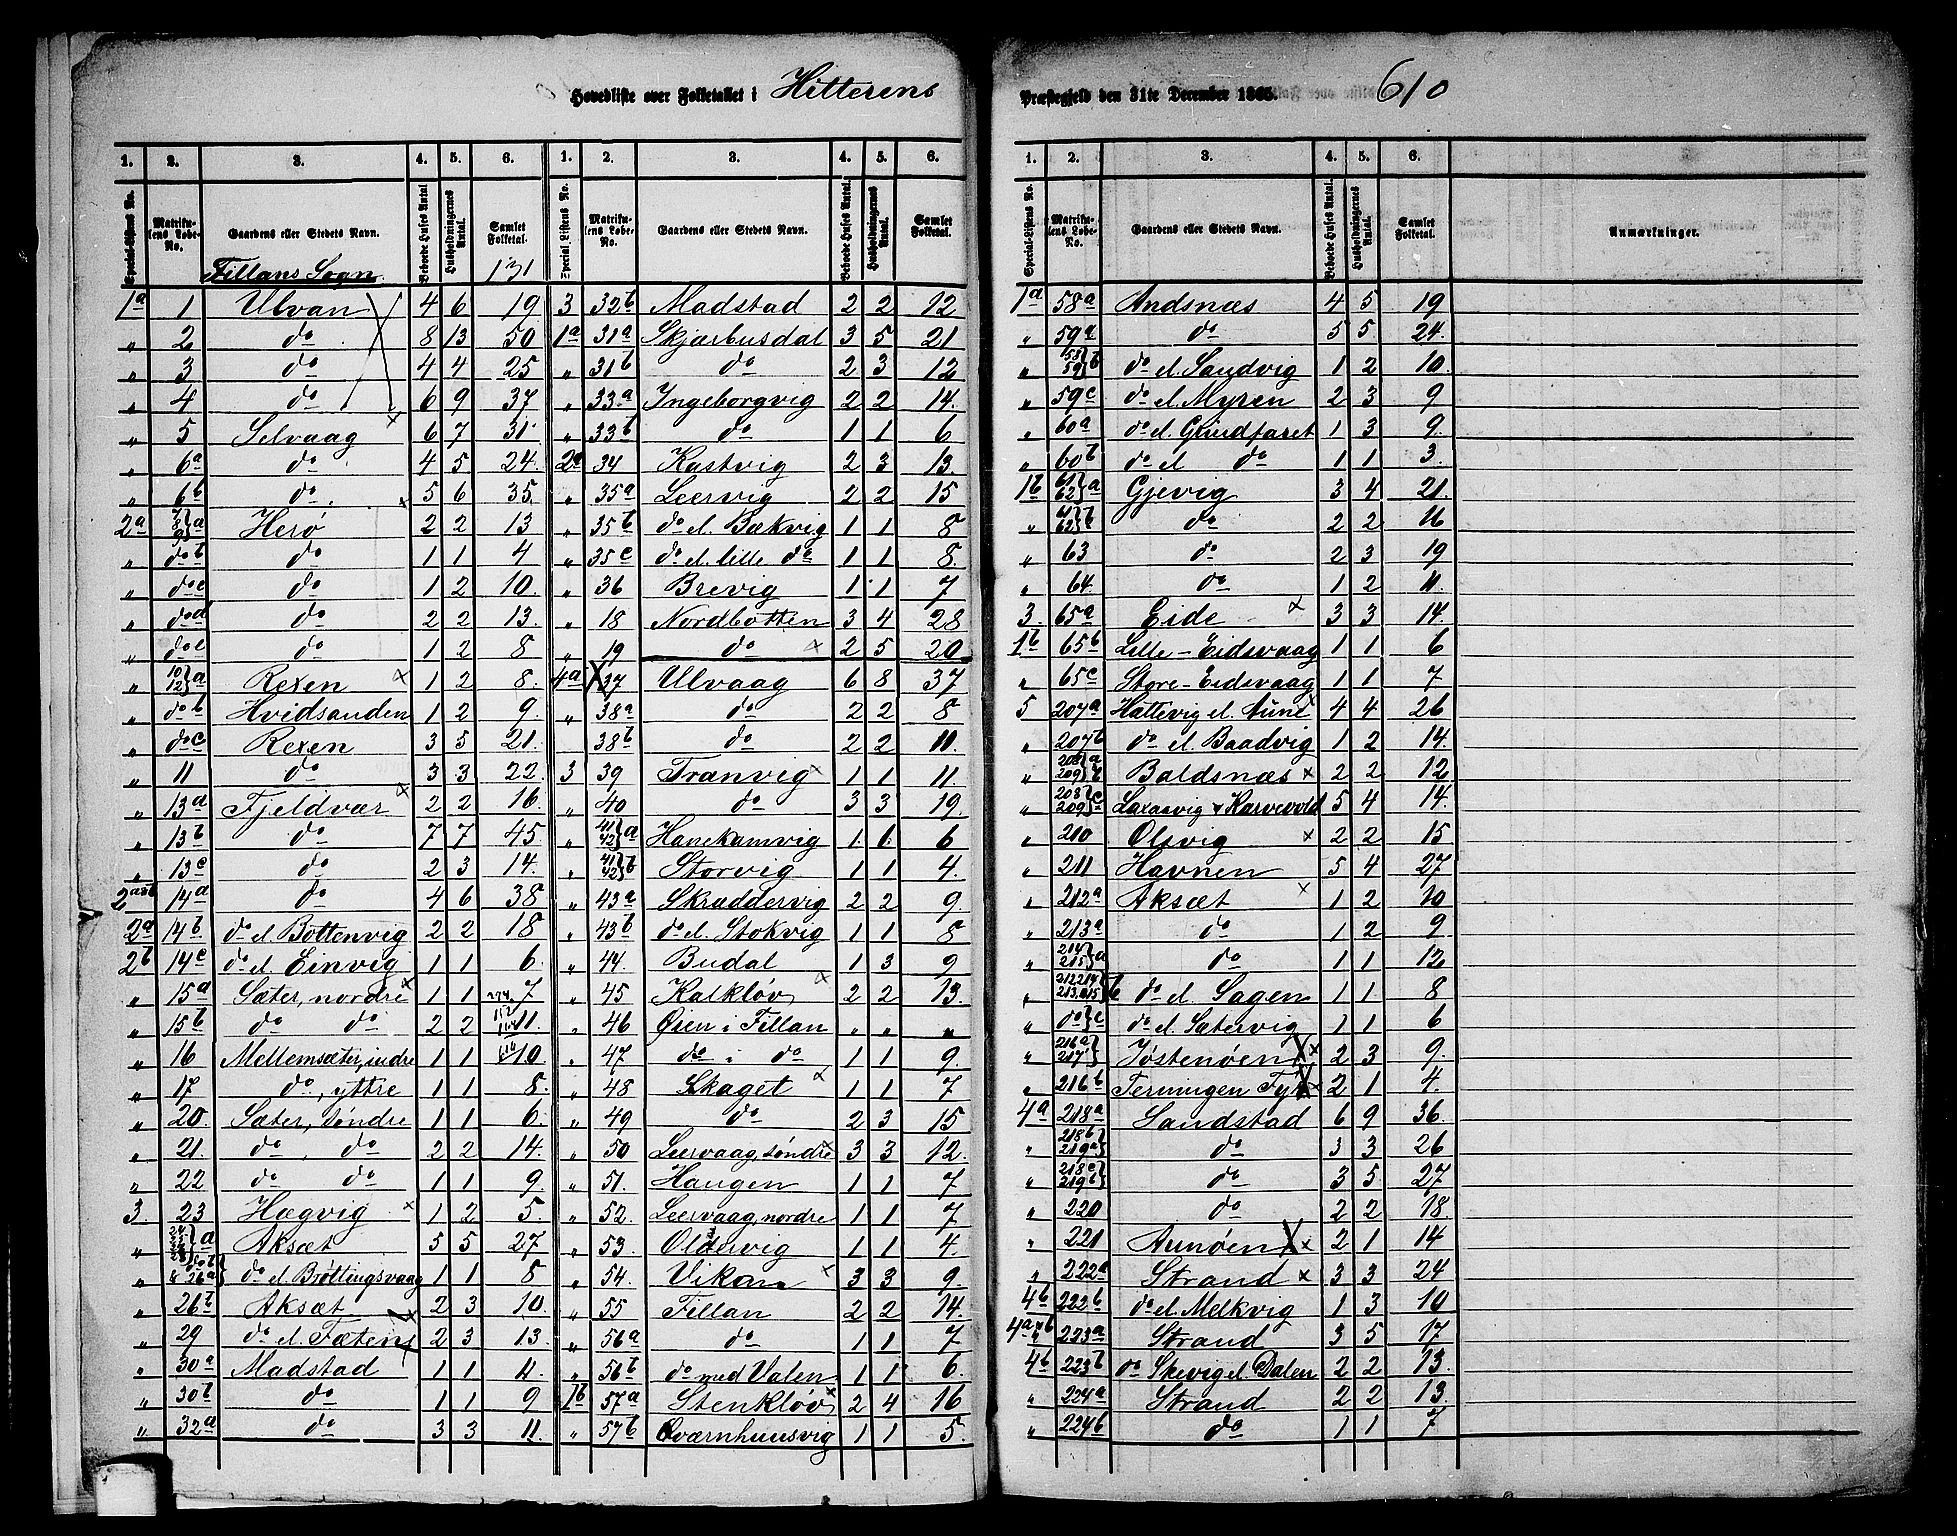 Hovedliste over Folketallet i Hitterens Præstegjeld den 31te December 1865. 610
1. 2. 3. 4. 5. 6. 1. 2. 3. 4. 5. 6.
Special-Listens No. Matrikulens Løbe-No. Gaardens eller Stedets Navn. Beboede Huses Antal. Husholdningernes Antal. Samlet Folketal. Special-Listens No. Matrikulens Løbe-No. Gaardens eller Stedets Navn. Beboede Huses Antal. Husholdningernes Antal. Samlet Folketal.
Fillans Sogn. 131
1a 1 Ulvan 4 6 19
„ 2 do 8 13 50
„ 3 do 4 4 25
„ 4 do 6 9 37
„ 5 Selvaag 6 7 31
„ 6a do 4 5 24
„ 6b do 5 6 35
2a 7 8 9}a Herø 2 2 13
„ do b do 1 1 4
„ do c do 1 2 10
„ do d do 2 2 13
„ do e do 1 2 8
„ 10 12}a Rexen 1 2 8
„ do b Hvidsanden 1 2 9
„ do c Rexen 3 5 21
„ 11 do 3 3 22
„ 13a Fjeldvær 2 2 16
„ 13b do 7 7 45
„ 13c do 2 3 14
2a&b 14a do 4 6 38
2a 14b do el. Bottenvig 2 2 18
2b 14c do el. Einvig 1 1 6
„ 15a Sæter, nordre 1 1 7
„ 15b do do 2 2 11
„ 16 Mellemsæter, indre 1 1 10
„ 17 do, yttre 1 1 8
„ 20 Sæter, søndre 1 1 6
„ 21 do, do 2 2 14
„ 22 do do 1 1 9
3 23 Hægvig 1 2 5
„ a Aksæt 5 5 27
„ do b & 26a} do el. Brøttingsvaag 1 1 8
„ 26b Aksæt 2 3 10
„ 29 do el. Fætens 2 3 13
„ 30a Madstad 1 1 4
„ 30b do 1 1 9
„ 32a do 3 3 11
3 32b Madstad 2 2 12
1a 31a Skjærbusdal 3 5 21
„ 31b do 2 3 12
„ 33a Ingeborgvig 2 2 14
„ 33b do 1 1 6
2a 34 Kastvig 2 3 13
„ 35a Leervig 2 2 15
„ 35b do el. Bækvig 1 1 8
„ 35c do el. lille do 1 1 8
„ 36 Brevig 1 1 7
„ 18 Nordbotten 3 4 28
„ 19 do 2 5 20
4a 37 Ulvaag 6 8 37
„ 38a do 2 2 8
38b do 2 2 11
3 39 Tranvig 1 1 11
„ 40 do 3 3 19
„ 41 42}a Hanekamvig 1 1 6
„ 41 42}b Storvig 1 1 4
„ 43a Skræddervig 2 2 9
„ 43b do el. Stokvig 1 1 8
„ 44 Budal 1 3 9
„ 45 Kalkløv 2 2 13
„ 46 Øien i Fillan „ „ „
„ 47 do i do 1 1 9
„ 48 Skaget 1 1 7
„ 49 do 2 3 15
„ 50 Leervaag, søndre 3 3 12
„ 51 Haugen 1 1 7
„ 52 Leervaag, nordre 1 1 7
„ 53 Oldervig 1 1 4
„ 54 Vikan 3 3 9
„ 55 Fillan 2 2 14
„ 56a do 1 1 7
„ 56b do med Valen 1 1 6
1b 57a Stenkløv 2 4 16
„ 57b Qværnhuusvig 1 1 5
1. 2. 3. 4. 5. 6.
Special-Listens No. Matrikulens Løbe-No. Gaardens eller Stedets Navn. Beboede Huses Antal. Husholdningernes Antal. Samlet Folketal. Anmærkninger.
1a 58a Andsnæs 4 5 19
„ 59a do 5 5 24
„ 58 59}b do el. Sandvig 1 2 10
„ 59c do el. Myren 2 3 9
„ 60a do el. Grindfaret 1 3 9
„ 60b do el do 1 1 3
1b 61 62}a Gjevig 3 4 21
„ 61 62}b do 2 2 16
„ 63 do 2 3 19
„ 64 do 1 2 11
3 65a Eide 3 3 14
1b 65b Lille-Eidsvaag 1 1 6
„ 65c Store-Eidsvaag 1 1 7
5 207a Hattevig el. Aune 4 4 26
„ 207b do el. Baadvig 1 2 14
„ 208a 209b Baldsnæs 2 2 12
„ 208 209}c Laxaavig & Karvevold 5 4 14
„ 210 Olsvig 2 2 15
„ 211 Havnen 5 4 27
„ 212a Aksæt 1 2 10
„ 213a do 1 2 9
„ 214 215}a do 1 1 12
„ 212 214 213 215}b do el. Sagen 1 1 8
„ do}c do el. Sætervig 1 1 6
„ 216a 217} Jøstenøen 2 3 9
„ 216b Terningen Fyr 2 1 4
4a 218a Sandstad 6 9 36
„ 218b 219a} do 3 3 26
„ 218c 219b} do 3 5 27
„ 220 do 2 2 18
„ 221 Aunøen 2 1 14
„ 222a Strand 3 3 24
4b 222b do el. Melkvig 1 3 10
4a&b 223a Strand 3 5 17
4b 223b do Skevig el. Dalen 2 2 13
„ 224a Strand 2 2 13
„ 224b do 1 1 7